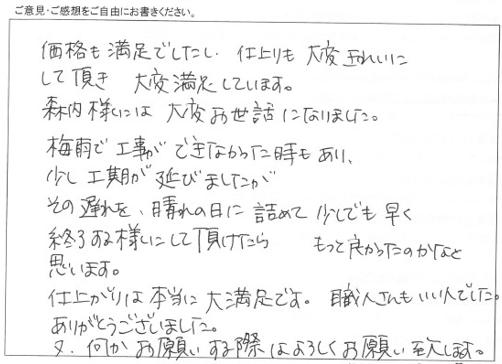 ご意見・ご感想をご自由にお書きください。
価格も満足でしたし、仕上りも大変きれいに
して頂き 大変満足しています。
森内様には大変お世話になりました。
梅雨で工事ができなかった時もあり、
少し工期が延びましたが
その遅れを、晴れの日に詰めて少しでも早く
終了する様にして頂けたら もっと良かったのかなと
思います。
仕上がりは本当に大満足です。職人さんもいい人でした。
ありがとうございました。
又、何かお願いする際はよろしくお願い致します。